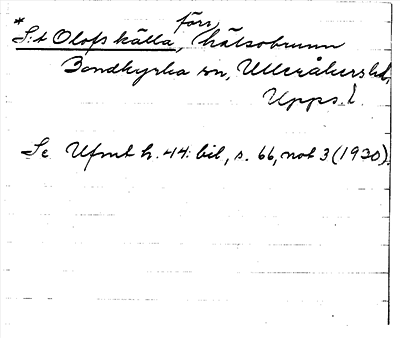 *S:t Olofs källa, förs, hälsobrunn
Bondkyrka sn, Ulleråkers hd,
Upps. l.
Se Ufmt h. 44: bil, s. 66, not 3 (1930).